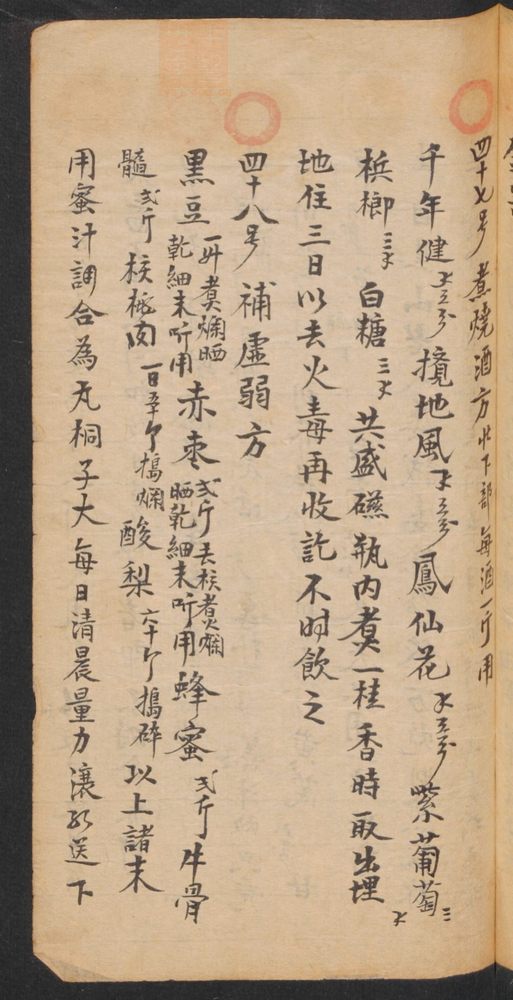 四十七号 煮燒酒方 壯下部 每酒一斤用
千年健 攪地風 鳳仙花 紫葡萄三
檳榔三 白糖三 共盛磁瓶内煮一桂香時取出埋
地住三日以去火毒再收訖不时飲之
四十八号 補虛弱方
黑豆一升煑爛晒乾細末听用 赤枣弍斤去核煮爛晒乾細末听用 蜂蜜弍斤 牛骨
髓弍斤 核桃肉一百五十个搗爛 酸梨六十个搗碎 以上諸末
用蜜汁調合為丸桐子大每日清晨量力滚水送下